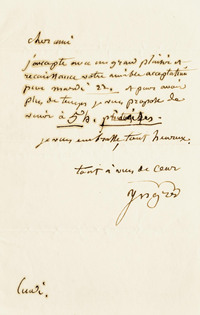 cher ami
j'accepte avec un grand plaisir et
reconnaissance votre aimable acceptation
pour mardi 22. et pour avoir
plus de temps je vous propose de
venir à 5 h. précises.
je vous embrasse, tout heureux.
tout à vous de cœur
Ingres
lundi.